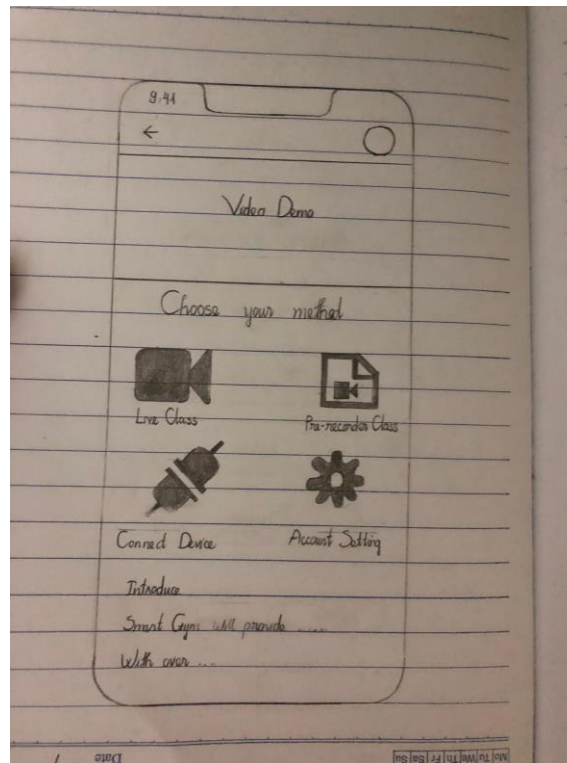 9:41
←
Video Demo
Choose your method
Live Class
Pre-recorder Class
Connect Device
Account Setting
Introduce
Smart Gym will provide .....
With over ...
Date /
Mo Tu We Th Fr Sa Su